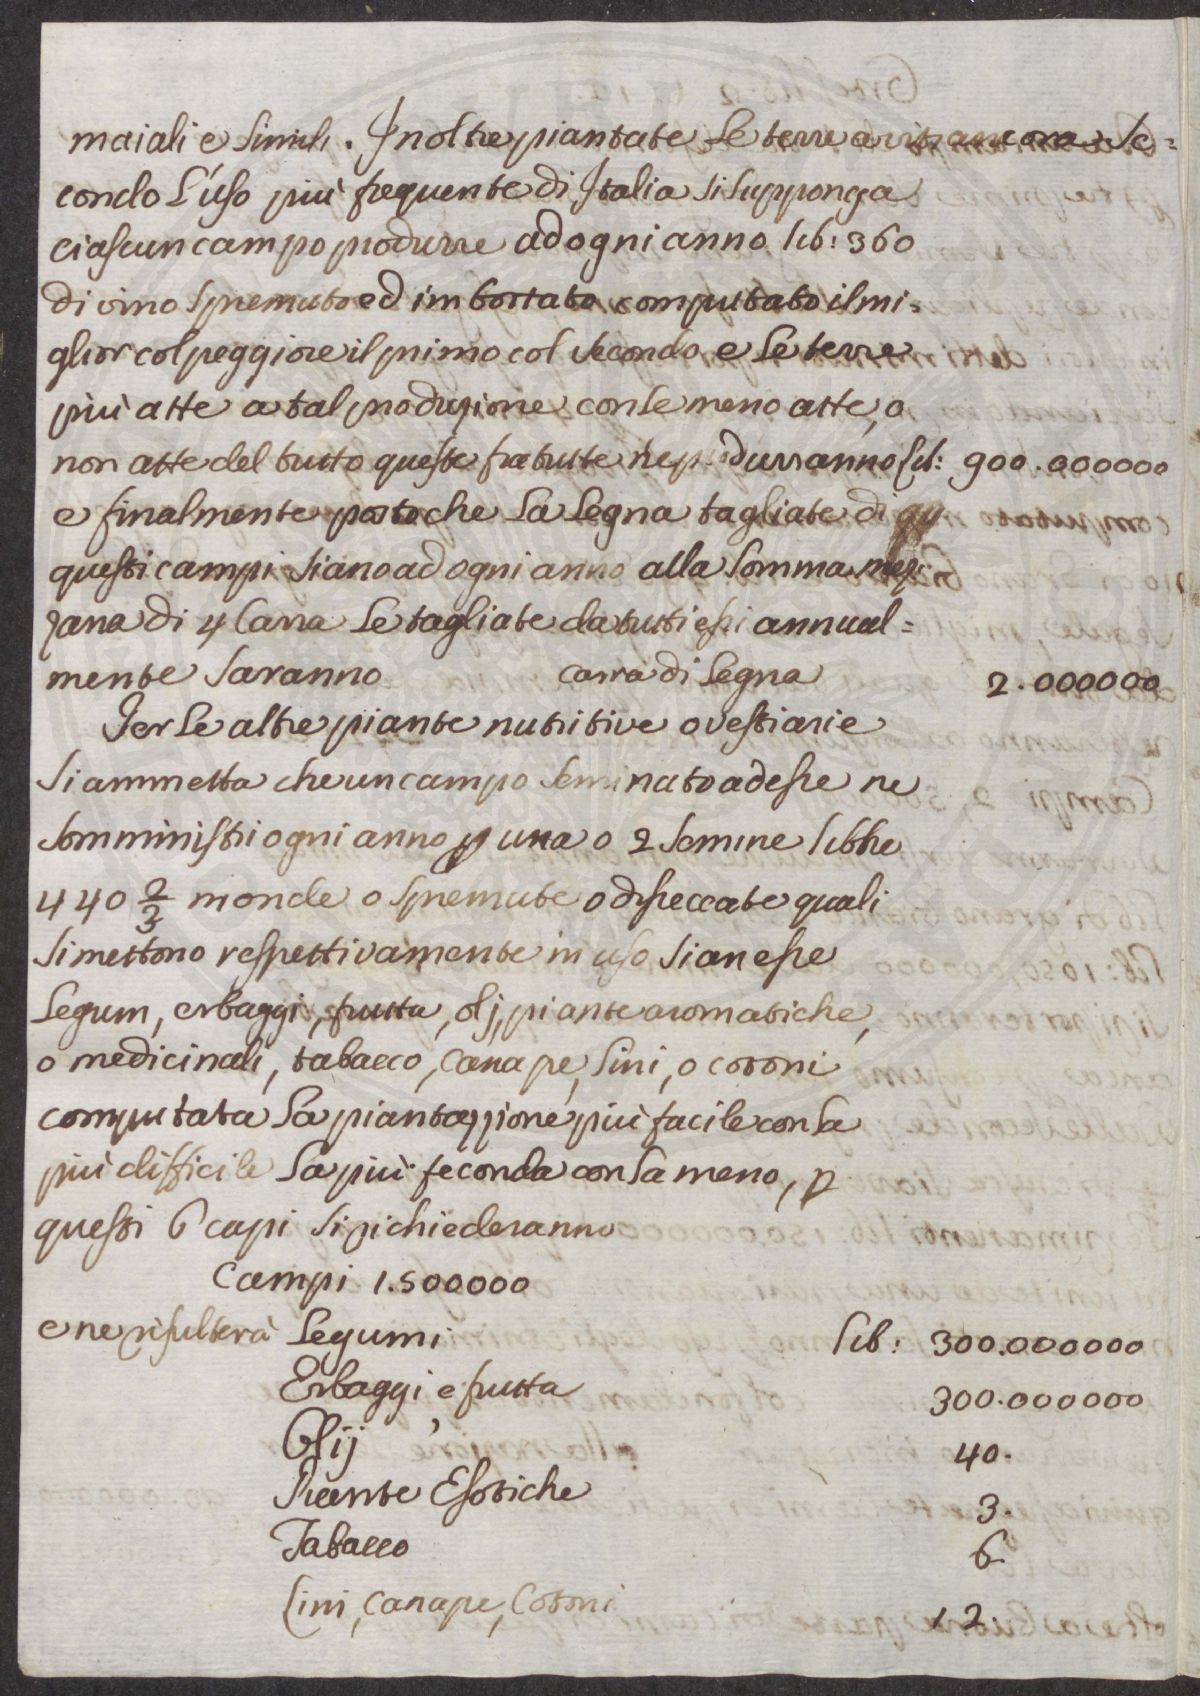 maiali e simili. Inoltre piantate le terre a viti ancora se=
condo l'uso più frequente di Italia si supponga
ciascun campo produrre ad ogni anno lib: 360
di vino spremuto ed imbottato computato il mi=
glior col peggiore il primo col secondo e le terre
più atte a tal produzione con le meno atte, o
non atte del tutto queste fra tutte ne produrranno lib: 900.000000
e finalmente posto che la legna tagliate di
questi campi siano ad ogni anno alla somma mez
zana di 4 Carra le tagliate da tutti essi annual=
mente saranno carra di legna 2.000000
Per le altre piante nutritive o vestiarie
si ammetta che un campo seminato ad esse ne
somministri ogni anno p una o 2 semine libbre
440 2/3 monde o spremute o disseccate quali
si mettono respettivamente in uso sian esse
legum, erbaggi, frutta, olj, piante aromatiche,
o medicinali, tabacco, canape, lini, o cotoni
computata la piantazzione più facile con la
più difficile la più feconda con la meno, p
questi 6 capi si richiederanno
Campi 1.500000
e ne risulterà Legumi lib: 300.000000
Erbaggi e frutta 300.000000
Olij 40.
Piante Esotiche 3.
Tabacco 6
Lini, Canape, Cotoni 12.